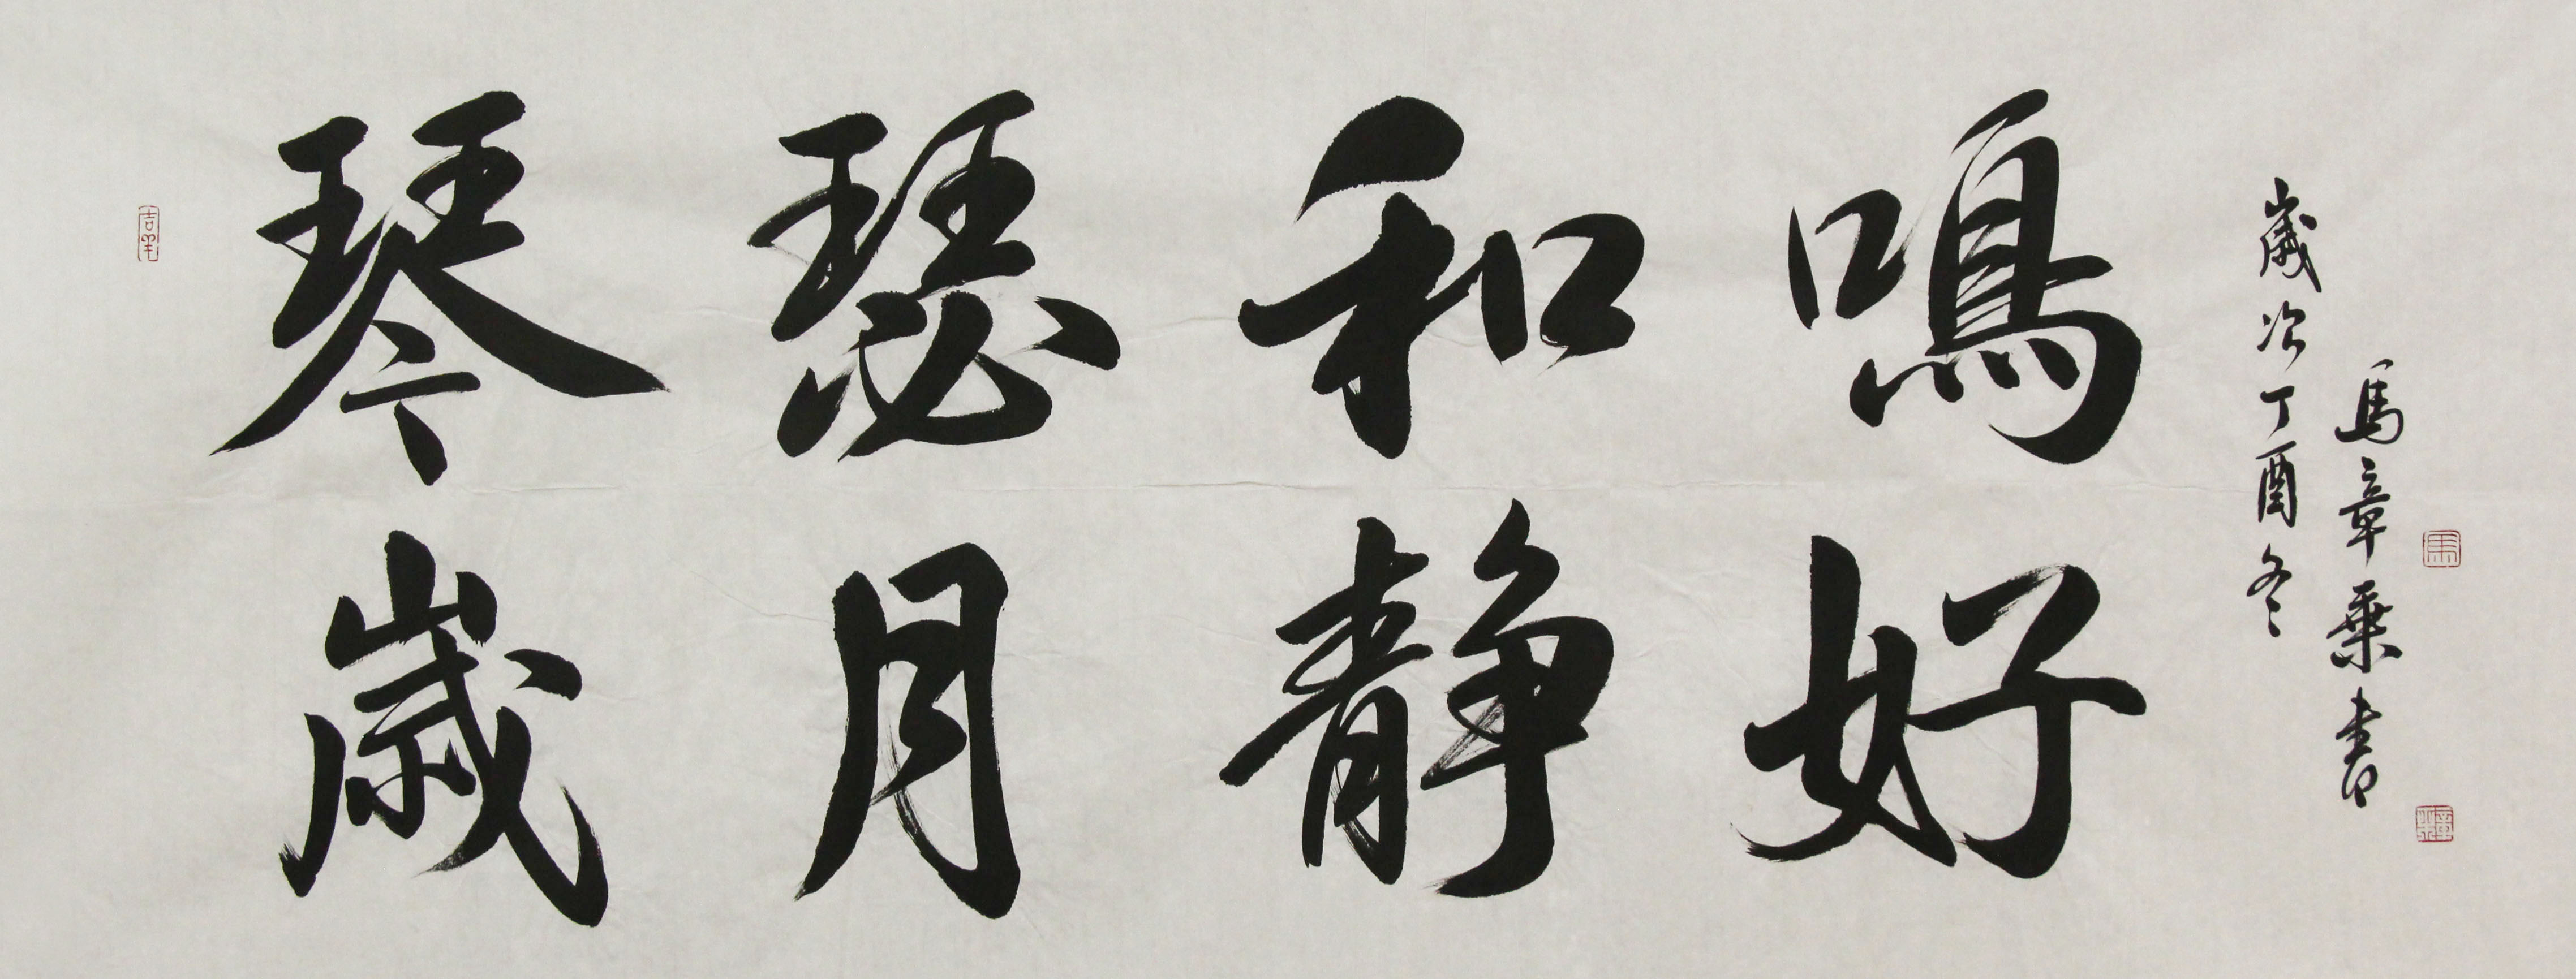 琴瑟和鳴
歲月静好
歲次丁酉冬
馬章乘書